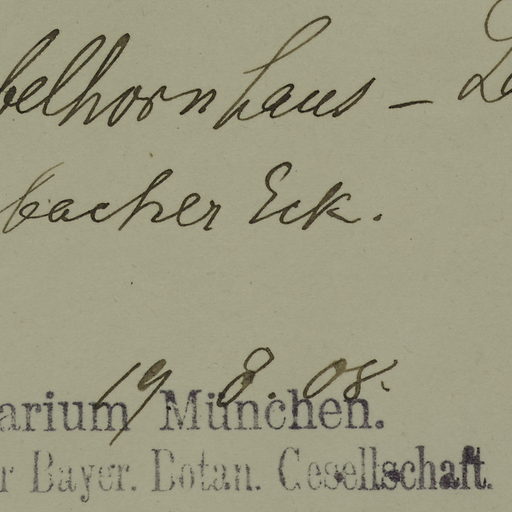 belhornhaus – La
bacher Eck.
19. 8. 08.
arium München.
r Bayer. Botan. Gesellschaft.